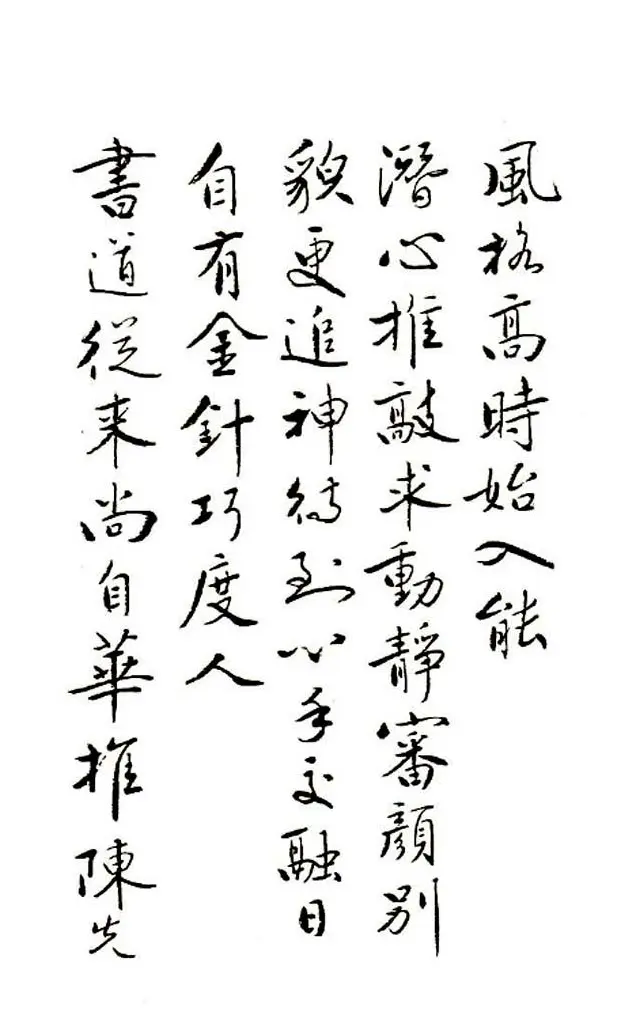 風格高時始入能
潛心推敲求動靜審顏別
貌更追神待到心手交融日
自有金針巧度人
書道從來尚自華推陳先